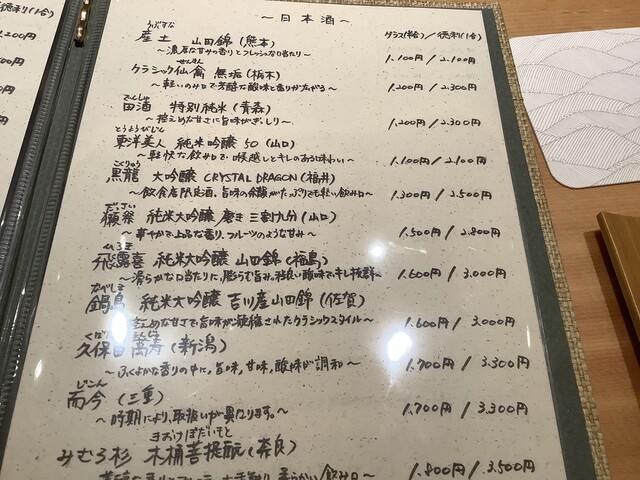 徳利(1合)
2,200円
300円
～日本酒～
グラス(半合)/徳利(1合)
うぶすな
産土 山田錦(熊本)
～濃厚な甘みと香りとフレッシュな口当たり～
1,100円/2,100円
せんきん
クラシック仙禽 無垢(栃木)
～軽いのみ口で芳醇な酸味と香りが広がる～
1,200円/2,300円
でんしゅ
田酒 特別純米(青森)
～控えめな甘さに旨味がぎっしり～
1,200円/2,300円
とうようびじん
東洋美人 純米吟醸 50(山口)
～軽快な飲み口で喉越しとキレのある味わい～
1,100円/2,100円
こくりゅう
黒龍 大吟醸 CRYSTAL DRAGON(福井)
～飲食店限定酒。旨味の余韻がたっぷりでも軽い飲み口～
1,300円/2,500円
だっさい
獺祭 純米大吟醸 磨き 三割九分(山口)
～華やかで上品な香り、フルーツのような甘み～
1,500円/2,800円
ひろき
飛露喜 純米大吟醸 山田錦(福島)
～滑らかな口当たりに、膨らむ旨み。程良い酸味でキレ抜群～
1,600円/3,000円
なべしま
鍋島 純米大吟醸 吉川産山田錦(佐賀)
控えめな甘さで旨味が凝縮されたクラシックスタイル～
1,600円/3,000円
久保田 萬寿(新潟)
～ふくよかな香りの中に、旨味、甘味、酸味が調和～
1,700円/3,300円
じこん
而今 (三重)
～時期により、取扱いが異なります。～
1,700円/3,300円
きおけぼだいもと
みむろ杉 木桶菩提酛(奈良)
1,800円/3,500円
柔らかい飲み口～